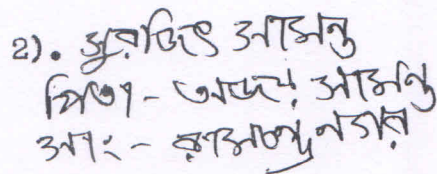 2). সুরজিৎ সামন্ত
পিতা - অজয় সামন্ত
সাং:- রামচন্দ্র নগর